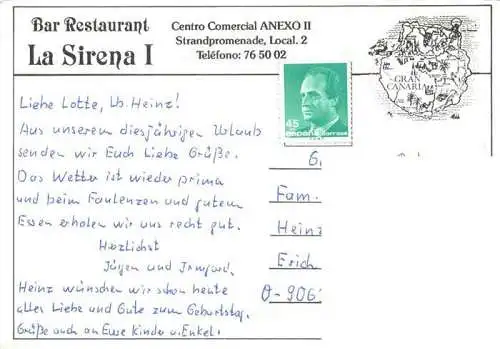 Bar Restaurant
La Sirena I
Centro Comercial ANEXO II
Strandpromenade, Local. 2
Teléfono: 76 50 02
GRAN
CANARIA
45
ESPAÑA CORREOS
Liebe Lotte, lb. Heinz!
Aus unserem diesjährigen Urlaub
senden wir Euch Liebe Grüße.
Das Wetter ist wieder prima
und beim Faulenzen und gutem
Essen erholen wir uns recht gut.
Herzlichst
Jürgen und Irmgard.
Heinz wünschen wir schon heute
alles Liebe und Gute zum Geburtstag.
Grüße auch an Eure Kinder u. Enkel!
Fam.
Heinz
Erich
D-906